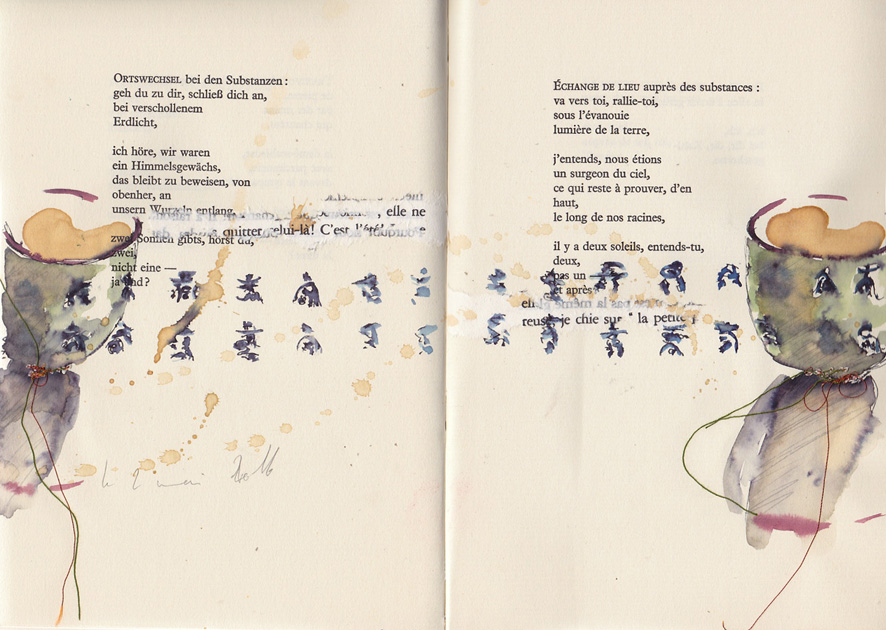 ORTSWECHSEL bei den Substanzen :
geh du zu dir, schließ dich an,
bei verschollenem
Erdlicht,
ich höre, wir waren
ein Himmelsgewächs,
das bleibt zu beweisen, von
obenher, an
unsern Wurzeln entlang,
elle ne
quitter celui-là! C'est l'été
zwei Sonnen gibts, hörst du,
zwei,
nicht eine —
ja und?
ÉCHANGE DE LIEU auprès des substances :
va vers toi, rallie-toi,
sous l'évanouie
lumière de la terre,
j'entends, nous étions
un surgeon du ciel,
ce qui reste à prouver, d'en
haut,
le long de nos racines,
il y a deux soleils, entends-tu,
deux,
pas un —
et après?
reuse je chie sur la petite
le 2 mai 2016